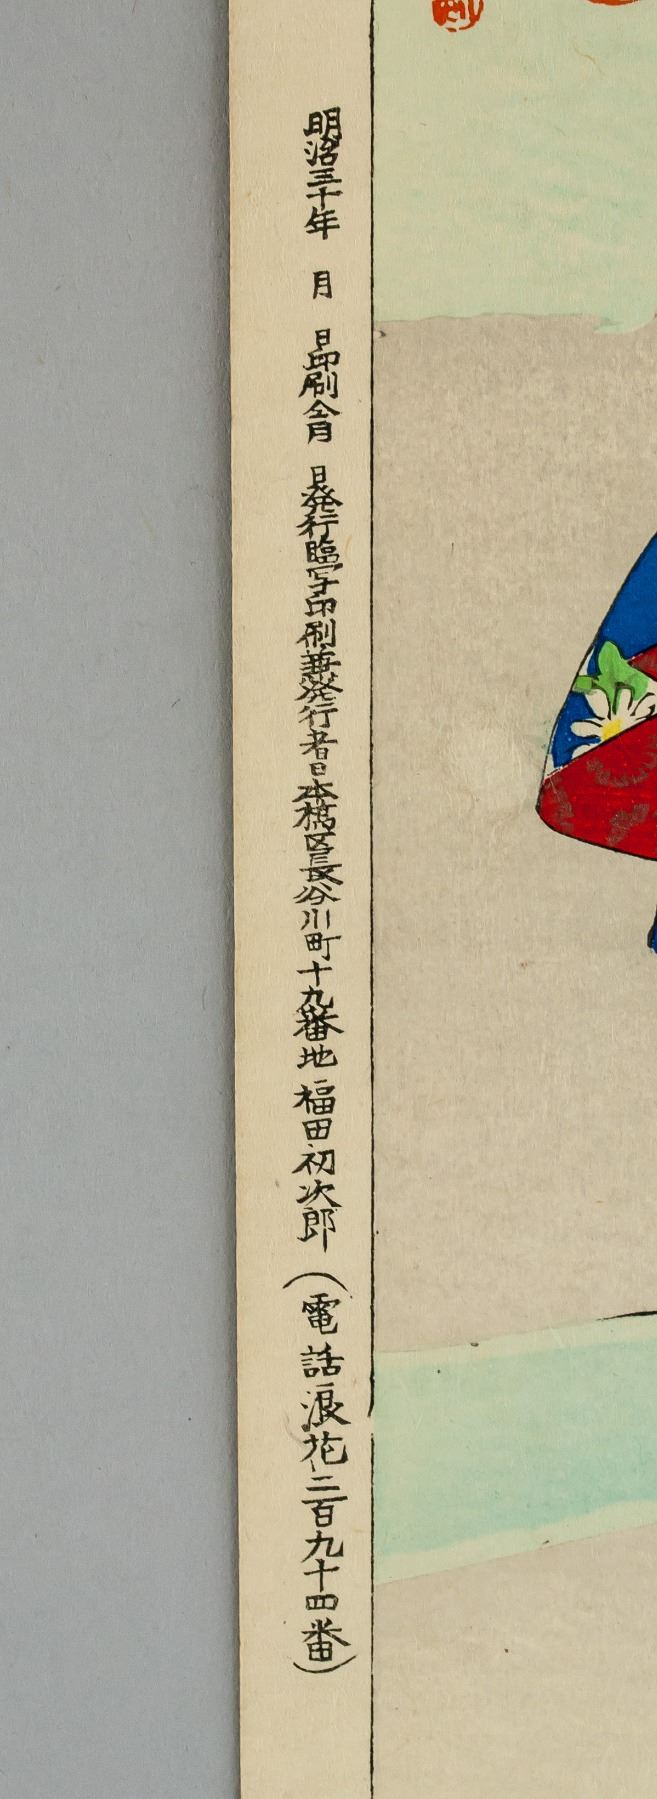 明治三十年　月　日印刷仝月　日発行臨写印刷兼発行者日本橋区長谷川町十九番地福田初次郎（電話浪花二百九十四番）